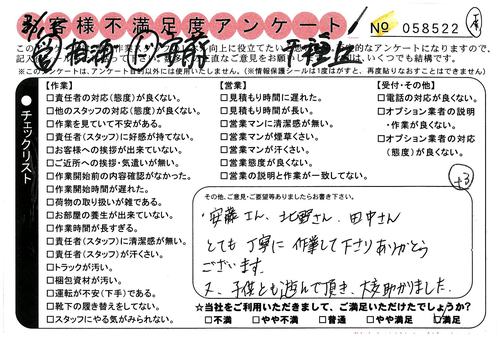 お客様不満足度アンケート
No 058522
チェックリスト
【作業】
□責任者の対応(態度)が良くない。
□他のスタッフの対応(態度)が良くない。
□作業を見ていて不安がある。
□責任者(スタッフ)に好感が持てない。
□お客様への挨拶が出来ていない。
□ご近所への挨拶・気遣いが無い。
□作業開始前の内容確認がなかった。
□作業開始時間が遅れた。
□荷物の取り扱いが雑である。
□お部屋の養生が出来ていない。
□作業時間が長すぎる。
□責任者(スタッフ)に清潔感が無い。
□責任者(スタッフ)が汗くさい。
□トラックが汚い。
□梱包資材が汚い。
□運転が不安(下手)である。
□靴下の履き替えをしてない。
□スタッフにやる気がみられない。
【営業】
□見積もり時間に遅れた。
□見積もり時間が長い。
□営業マンに清潔感が無い。
□営業マンが煙草くさい。
□営業マンが汗くさい。
□営業態度が良くない。
□営業の説明と作業が一致してない。
【受付・その他】
□電話の対応が良くない。
□オプション業者の説明
・作業が良くない。
□オプション業者の対応
(態度)が良くない。
その他、ご意見・ご要望等ありましたらお書き下さい。
・安藤さん、北野さん、田中さん
とても丁寧に作業して下さりありがとう
ございます。
又、子供とも遊んで頂き、大変助かりました。
☆当社をご利用いただきまして、ご満足いただけたでしょうか?
□不満 □やや不満 □普通 □やや満足 □満足